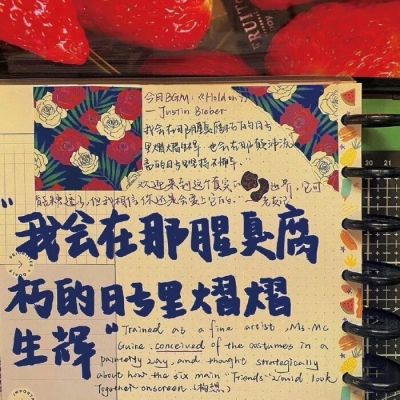 FRUIT
今日BGM:《Hold on》
— Justin Bieber
我会在那腥臭腐朽的日子
里熠熠生辉,也会在那
的日子里坚持不懈
欢迎来到这个真实 世界,它可
能糟透了,但我相信你还是会爱上它的。— 老友记
“我会在那腥臭腐
朽的日子里熠熠
生辉”
Trained as a fine artist, Ms. Mc
Guire conceived of the costumes in a
painterly way and thought strategically
about how the six main "Friends" would look
together onscreen. (构想)
20 21